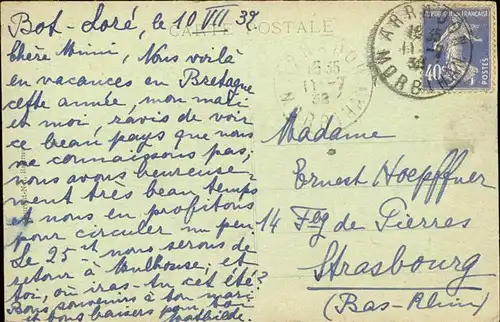 Bot-Loré, le 10 VII 39
CARTE POSTALE
Chère Mimi, Nous voilà
en vacances en Bretagne
cette année, mon mari
et moi, ravis de voir
ce beau pays que nous
ne connaissons pas,
nous avons heureuse-
ment très beau temps
et nous en profitons
pour circuler un peu
Le 25 ct nous serons de
retour à Mulhouse; et
toi, où iras-tu cet été?
Bons souvenirs à ton mari
et bons baisers pour toi
Mathilde.
ARRADON
16 35
11-7
38
MORBIHAN
ARRADON
16 35
11-7
38
MORBIHAN
RÉPUBLIQUE FRANÇAISE
40
Madame
Ernest Hoepffner
14 Fbg de Pierres
Strasbourg
(Bas-Rhin)